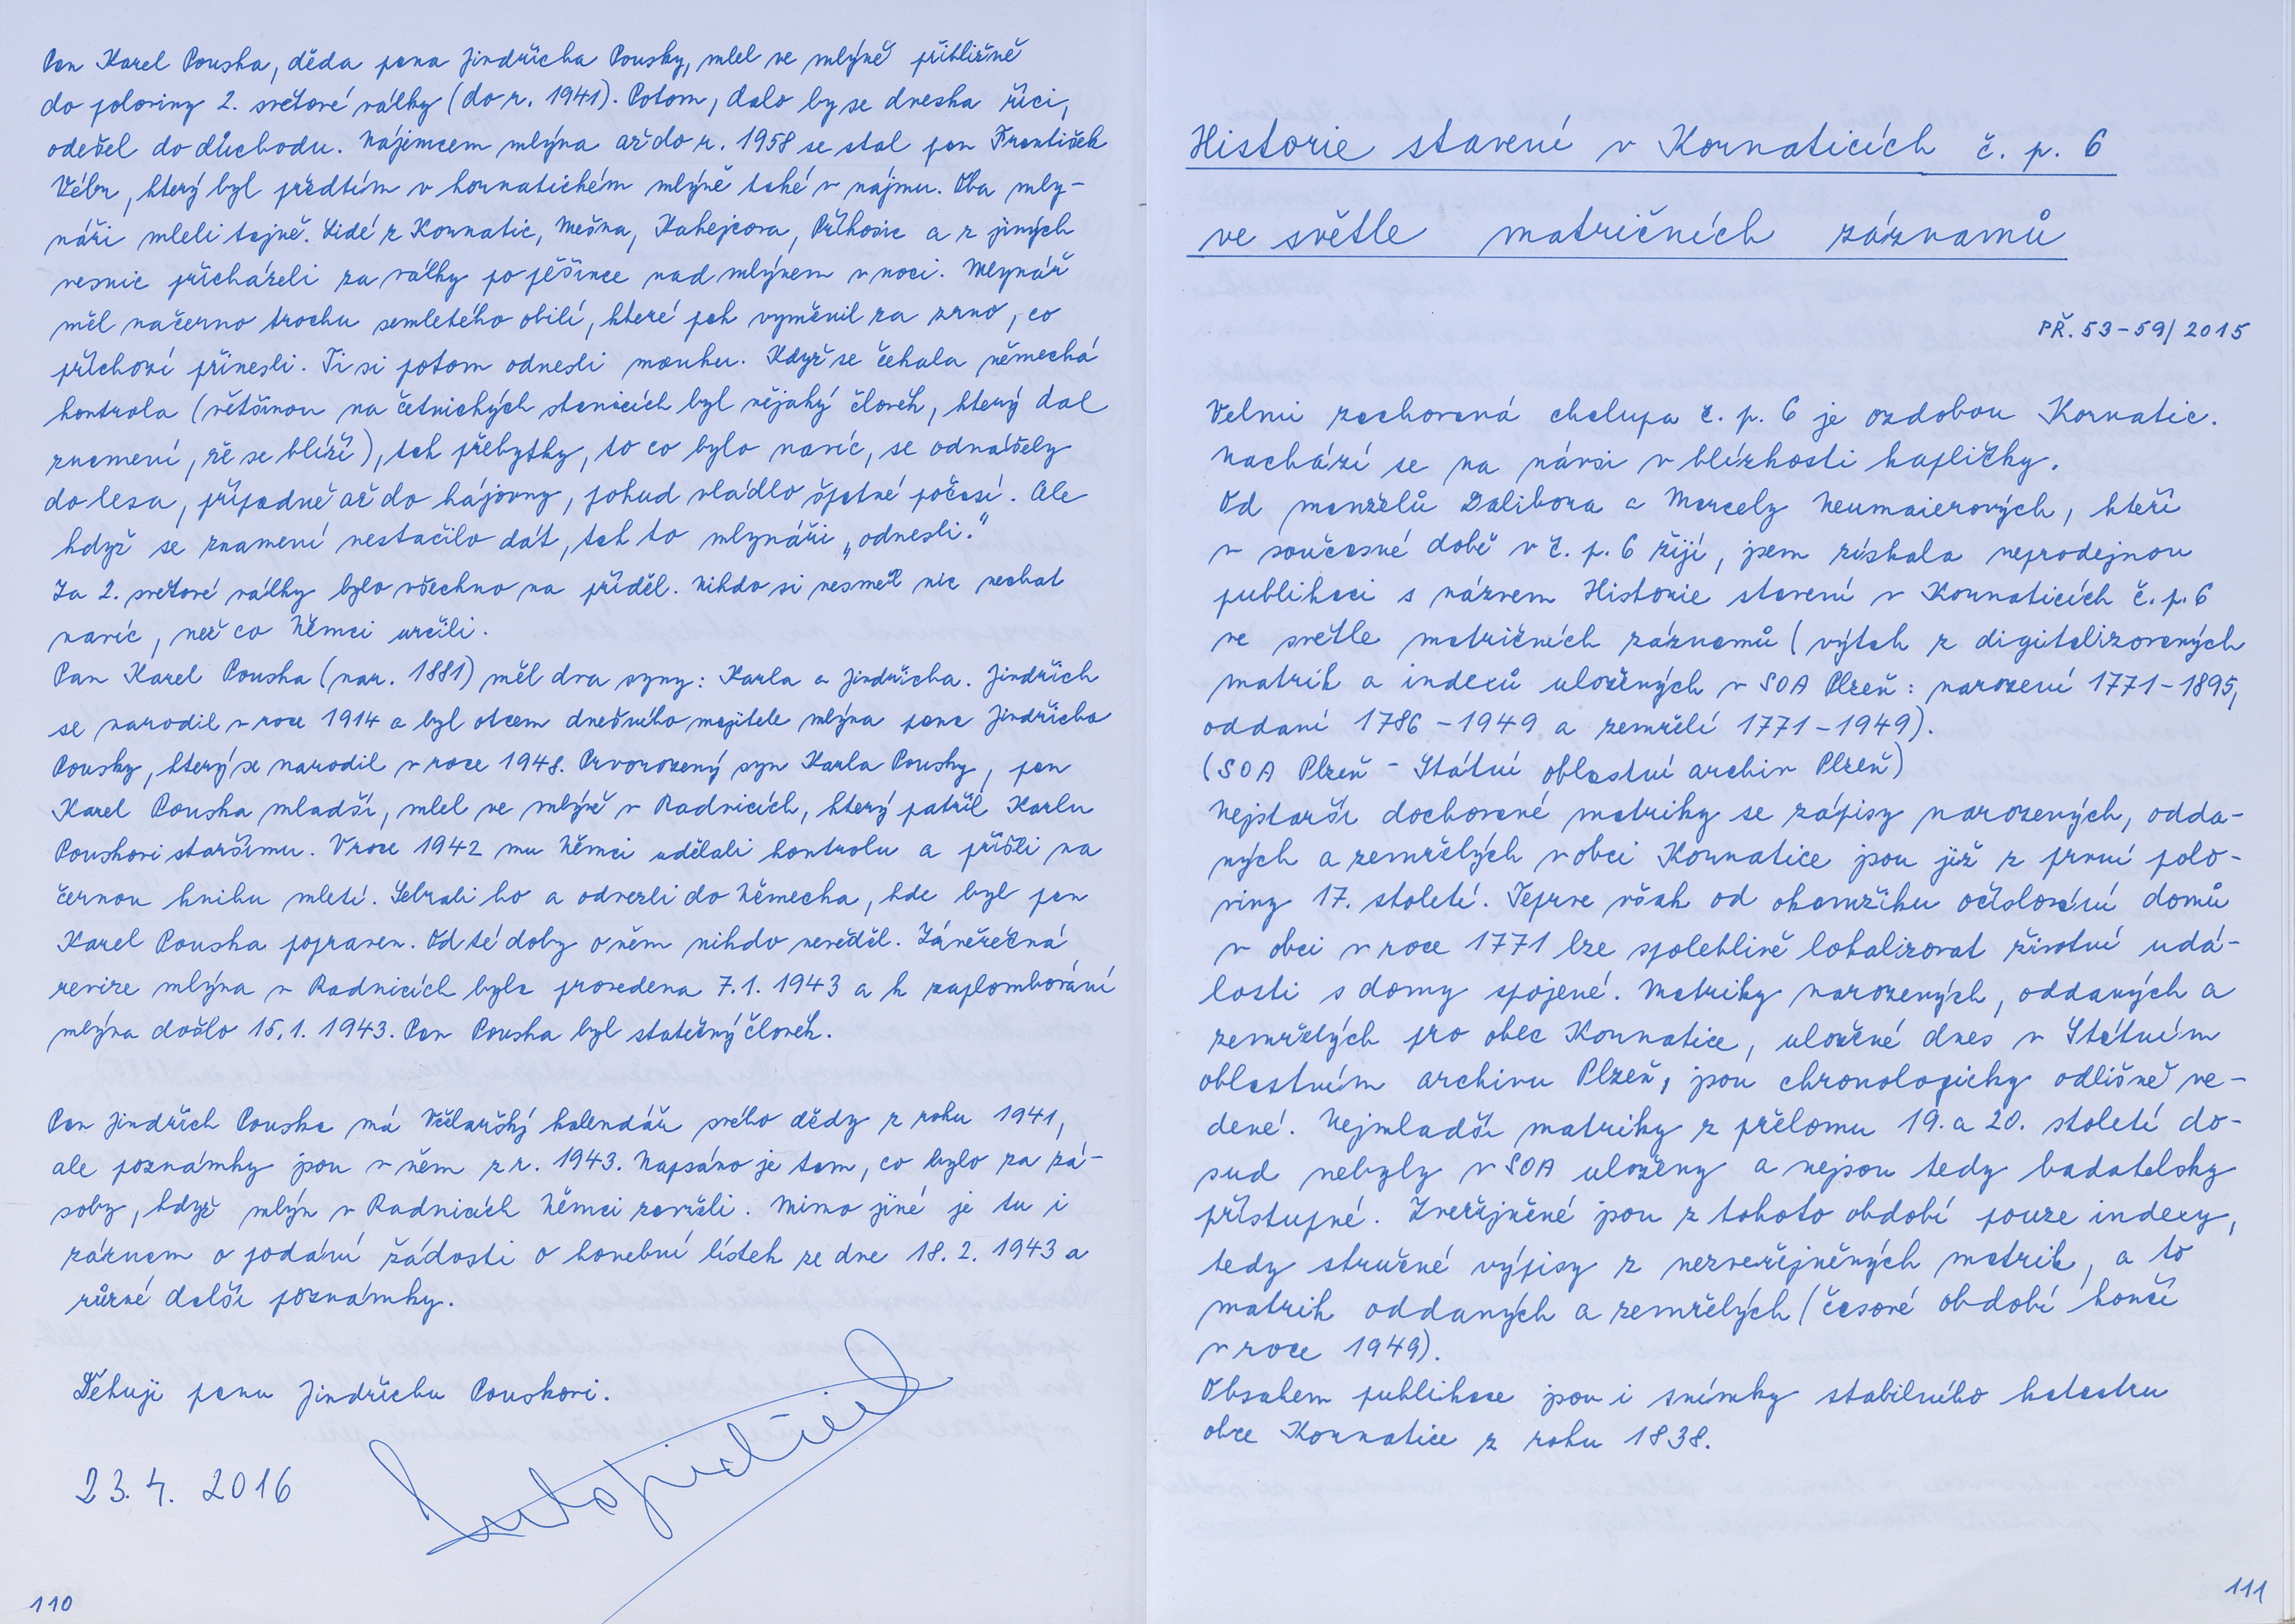 Pan Karel Pouska, děda pana Jindřicha Pousky, mlel ve mlýně přibližně
do poloviny 2. světové války (do r. 1941). Potom, dalo by se dneska říci,
odešel do důchodu. Nájemcem mlýna až do r. 1958 se stal pan František
Vébr, který byl předtím v kornatickém mlýně také v nájmu. Oba mly-
náři mleli tajně. Lidé z Kornatic, Mešna, Kakejcova, Příkosic a z jiných
vesnic přicházeli za války po pěšince nad mlýnem v noci. Mlynář
měl načerno trochu semletého obilí, které pak vyměnil za zrno, co
příchozí přinesli. Ti si potom odnesli mouku. Když se čekala německá
kontrola (většinou na četnických stanicích byl nějaký člověk, který dal
znamení, že se blíží), tak přebytky, to co bylo navíc, se odnášely
do lesa, případně až do hájovny, pokud vládlo špatné počasí. Ale
když se znamení nestačilo dát, tak to mlynáři „odnesli."
Za 2. světové války bylo všechno na příděl. Nikdo si nesměl nic nechat
navíc, než co Němci určili.
Pan Karel Pouska (nar. 1881) měl dva syny: Karla a Jindřicha. Jindřich
se narodil v roce 1914 a byl otcem dnešního majitele mlýna pana Jindřicha
Pousky, který se narodil v roce 1948. Prvorozený syn Karla Pousky, pan
Karel Pouska mladší, mlel ve mlýně v Radnicích, který patřil Karlu
Pouskovi staršímu. V roce 1942 mu Němci udělali kontrolu a přišli na
černou knihu mletí. Sebrali ho a odvezli do Německa, kde byl pan
Karel Pouska popraven. Od té doby o něm nikdo nevěděl. Závěrečná
revize mlýna v Radnicích byla provedena 7.1. 1943 a k zaplombování
mlýna došlo 15.1. 1943. Pan Pouska byl statečný člověk.
Pan Jindřich Pouska má Včelařský kalendář svého dědy z roku 1941,
ale poznámky jsou v něm z r. 1943. Napsáno je tam, co bylo za zá-
soby, když mlýn v Radnicích Němci zavřeli. Mimo jiné je tu i
záznam o podání žádosti o honební lístek ze dne 18. 2. 1943 a
různé další poznámky.
Děkuji panu Jindřichu Pouskovi.
23. 4. 2016
110
Historie stavení v Kornaticích č. p. 6
ve světle matričních záznamů
PŘ. 53-59/2015
Velmi zachovaná chalupa č. p. 6 je ozdobou Kornatic.
Nachází se na návsi v blízkosti kapličky.
Od manželů Dalibora a Marcely Neumaierových, kteří
v současné době v č. p. 6 žijí, jsem získala neprodejnou
publikaci s názvem Historie stavení v Kornaticích č. p. 6
ve světle matričních záznamů (výtah z digitalizovaných
matrik a indexů uložených v SOA Plzeň: narození 1771-1895,
oddaní 1786 - 1949 a zemřelí 1771-1949).
(SOA Plzeň - Státní oblastní archiv Plzeň)
Nejstarší dochované matriky se zápisy narozených, odda-
ných a zemřelých v obci Kornatice jsou již z první polo-
viny 17. století. Teprve však od okamžiku očíslování domů
v obci v roce 1771 lze spolehlivě lokalizovat životní udá-
losti s domy spojené. Matriky narozených, oddaných a
zemřelých pro obec Kornatice, uložené dnes v Státním
oblastním archivu Plzeň, jsou chronologicky odlišně ve-
dené. Nejmladší matriky z přelomu 19. a 20. století do-
sud nebyly v SOA uloženy a nejsou tedy badatelsky
přístupné. Zveřejněné jsou z tohoto období pouze indexy,
tedy stručné výpisy z nezveřejněných matrik, a to
matrik oddaných a zemřelých (časové období končí
v roce 1949).
Obsahem publikace jsou i snímky stabilního katastru
obce Kornatice z roku 1838.
111